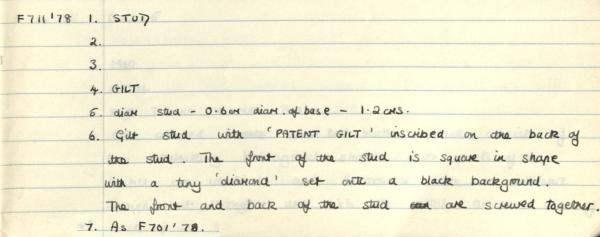 F711'78 1. STUD
2.
3.
4. GILT
5. diam stud - 0.6cm diam. of base - 1.2cms.
6. Gilt stud with 'PATENT GILT' inscribed on the back of
the stud. The front of the stud is square in shape
with a tiny 'diamond' set onto a black background.
The front and back of the stud are screwed together.
7. As F701'78.